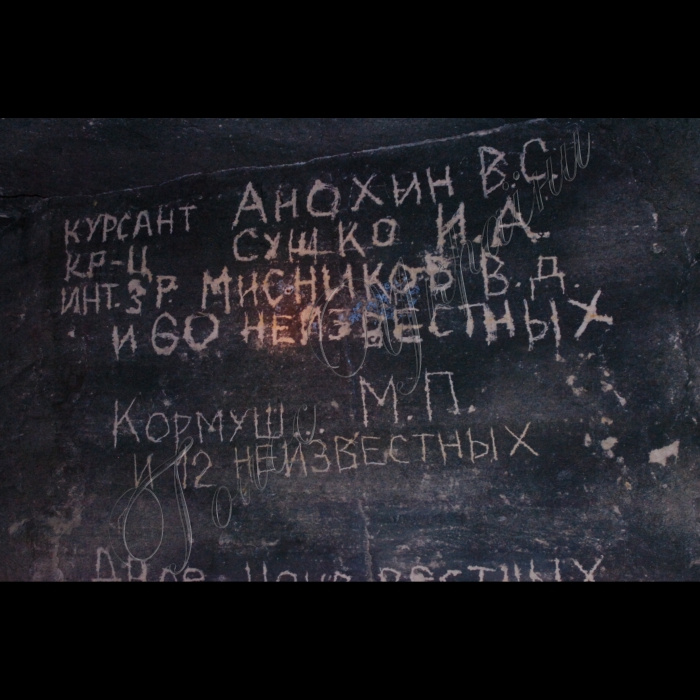 КУРСАНТ АНОХИН В.С.
КР-Ц СУШКО И.А.
ИНТ. 3 Р. МИСНИКОВ В.Д.
И 60 НЕИЗВЕСТНЫХ
КОРМУШ М.П.
И 12 НЕИЗВЕСТНЫХ